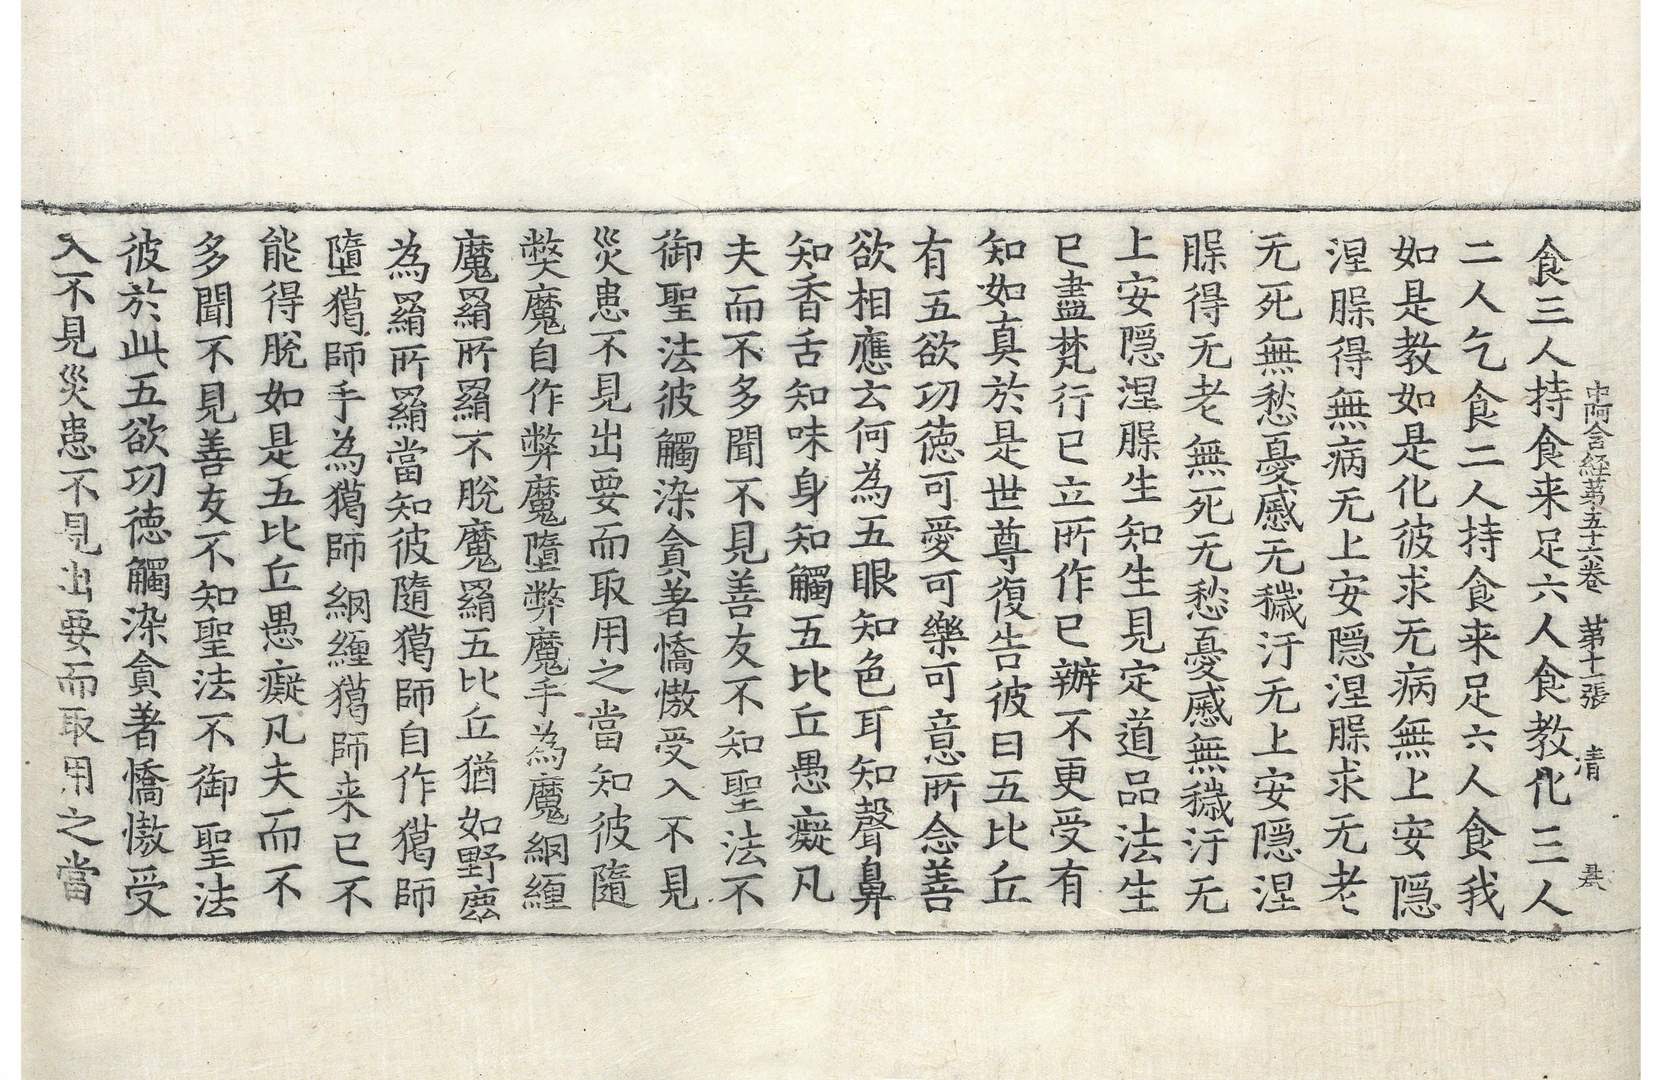 中阿含経第五十六卷 第十一張 清
食三人持食来足六人食教化三人
二人乞食二人持食来足六人食我
如是教如是化彼求无病無上安隱
涅腂得無病无上安隱涅腂求无老
无死無愁憂慼无穢汙无上安隱涅
腂得无老無死无愁憂慼無穢汙无
上安隱涅腂生知生見定道品法生
已盡梵行已立所作已辦不更受有
知如真於是世尊復告彼曰五比丘
有五欲功徳可愛可樂可意所念善
欲相應云何為五眼知色耳知聲鼻
知香舌知味身知觸五比丘愚癡凡
夫而不多聞不見善友不知聖法不
御聖法彼觸染貪著憍慠受入不見
災患不見出要而取用之當知彼隨
弊魔自作弊魔墮弊魔手為魔網纏
魔羂所羂不脫魔羂五比丘猶如野麤
為羂所羂當知彼隨獦師自作獦師
墮獦師手為獦師網纏獦師来已不
能得脫如是五比丘愚癡凡夫而不
多聞不見善友不知聖法不御聖法
彼於此五欲功徳觸染貪著憍慠受
入不見災患不見出要而取用之當